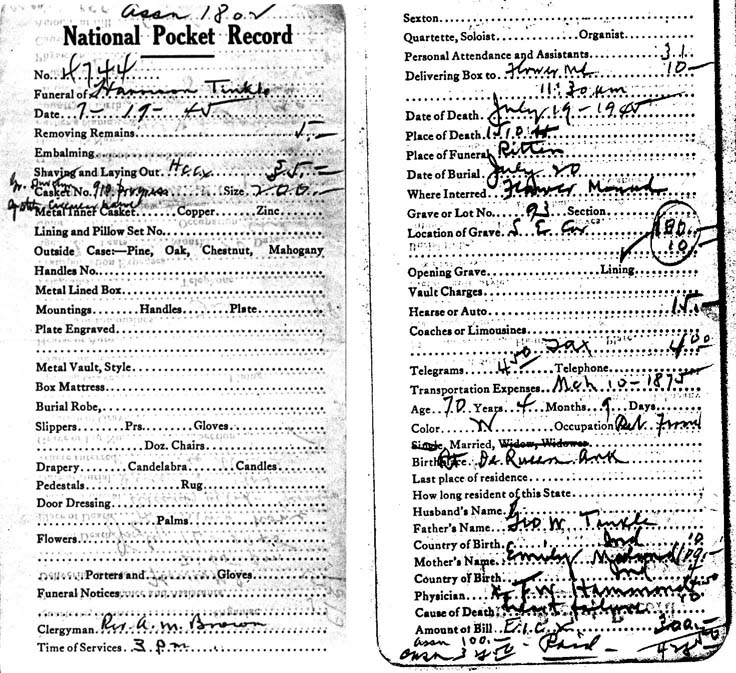 Assn 180
National Pocket Record
No. 4744
Funeral of Harrison Tinkle
Date 7-19-45
Removing Remains 5.-
Embalming
Shaving and Laying Out. 35.-
Casket No. 910 Progress Size 200.-
Metal Inner Casket Copper Zinc
Lining and Pillow Set No.
Outside Case:—Pine, Oak, Chestnut, Mahogany
Handles No.
Metal Lined Box
Mountings Handles Plate
Plate Engraved
Metal Vault, Style
Box Mattress
Burial Robe,
Slippers Prs. Gloves
Doz. Chairs
Drapery Candelabra Candles
Pedestals Rug
Door Dressing
Palms
Flowers
Porters and Gloves
Funeral Notices
Clergyman Rev A. M. Brown
Time of Services 3 P.M.
Sexton
Quartette, Soloist Organist
Personal Attendance and Assistants
Delivering Box to 10-
11:30 AM
Date of Death July 19-1945
Place of Death
Place of Funeral Ritter
Date of Burial July 20
Where Interred Flower Mound
Grave or Lot No. 93 Section
Location of Grave S. E. Cor 180.-
10.-
Opening Grave Lining
Vault Charges
Hearse or Auto 15.-
Coaches or Limousines
Tax 4.00
Telegrams 4.50 Telephone
Transportation Expenses Mch 10-1875
Age 70 Years 4 Months 9 Days
Color W Occupation Ret Farmer
Single, Married, Widow, Widower
Birthplace De Russen Ark
Last place of residence
How long resident of this State
Husband's Name
Father's Name Geo W. Tinkle
Country of Birth Ind
Mother's Name Emily
Country of Birth Ind
Physician T. W. Hammond
Cause of Death Heart failure
Amount of Bill 300.-
Assn 100.-
Paid